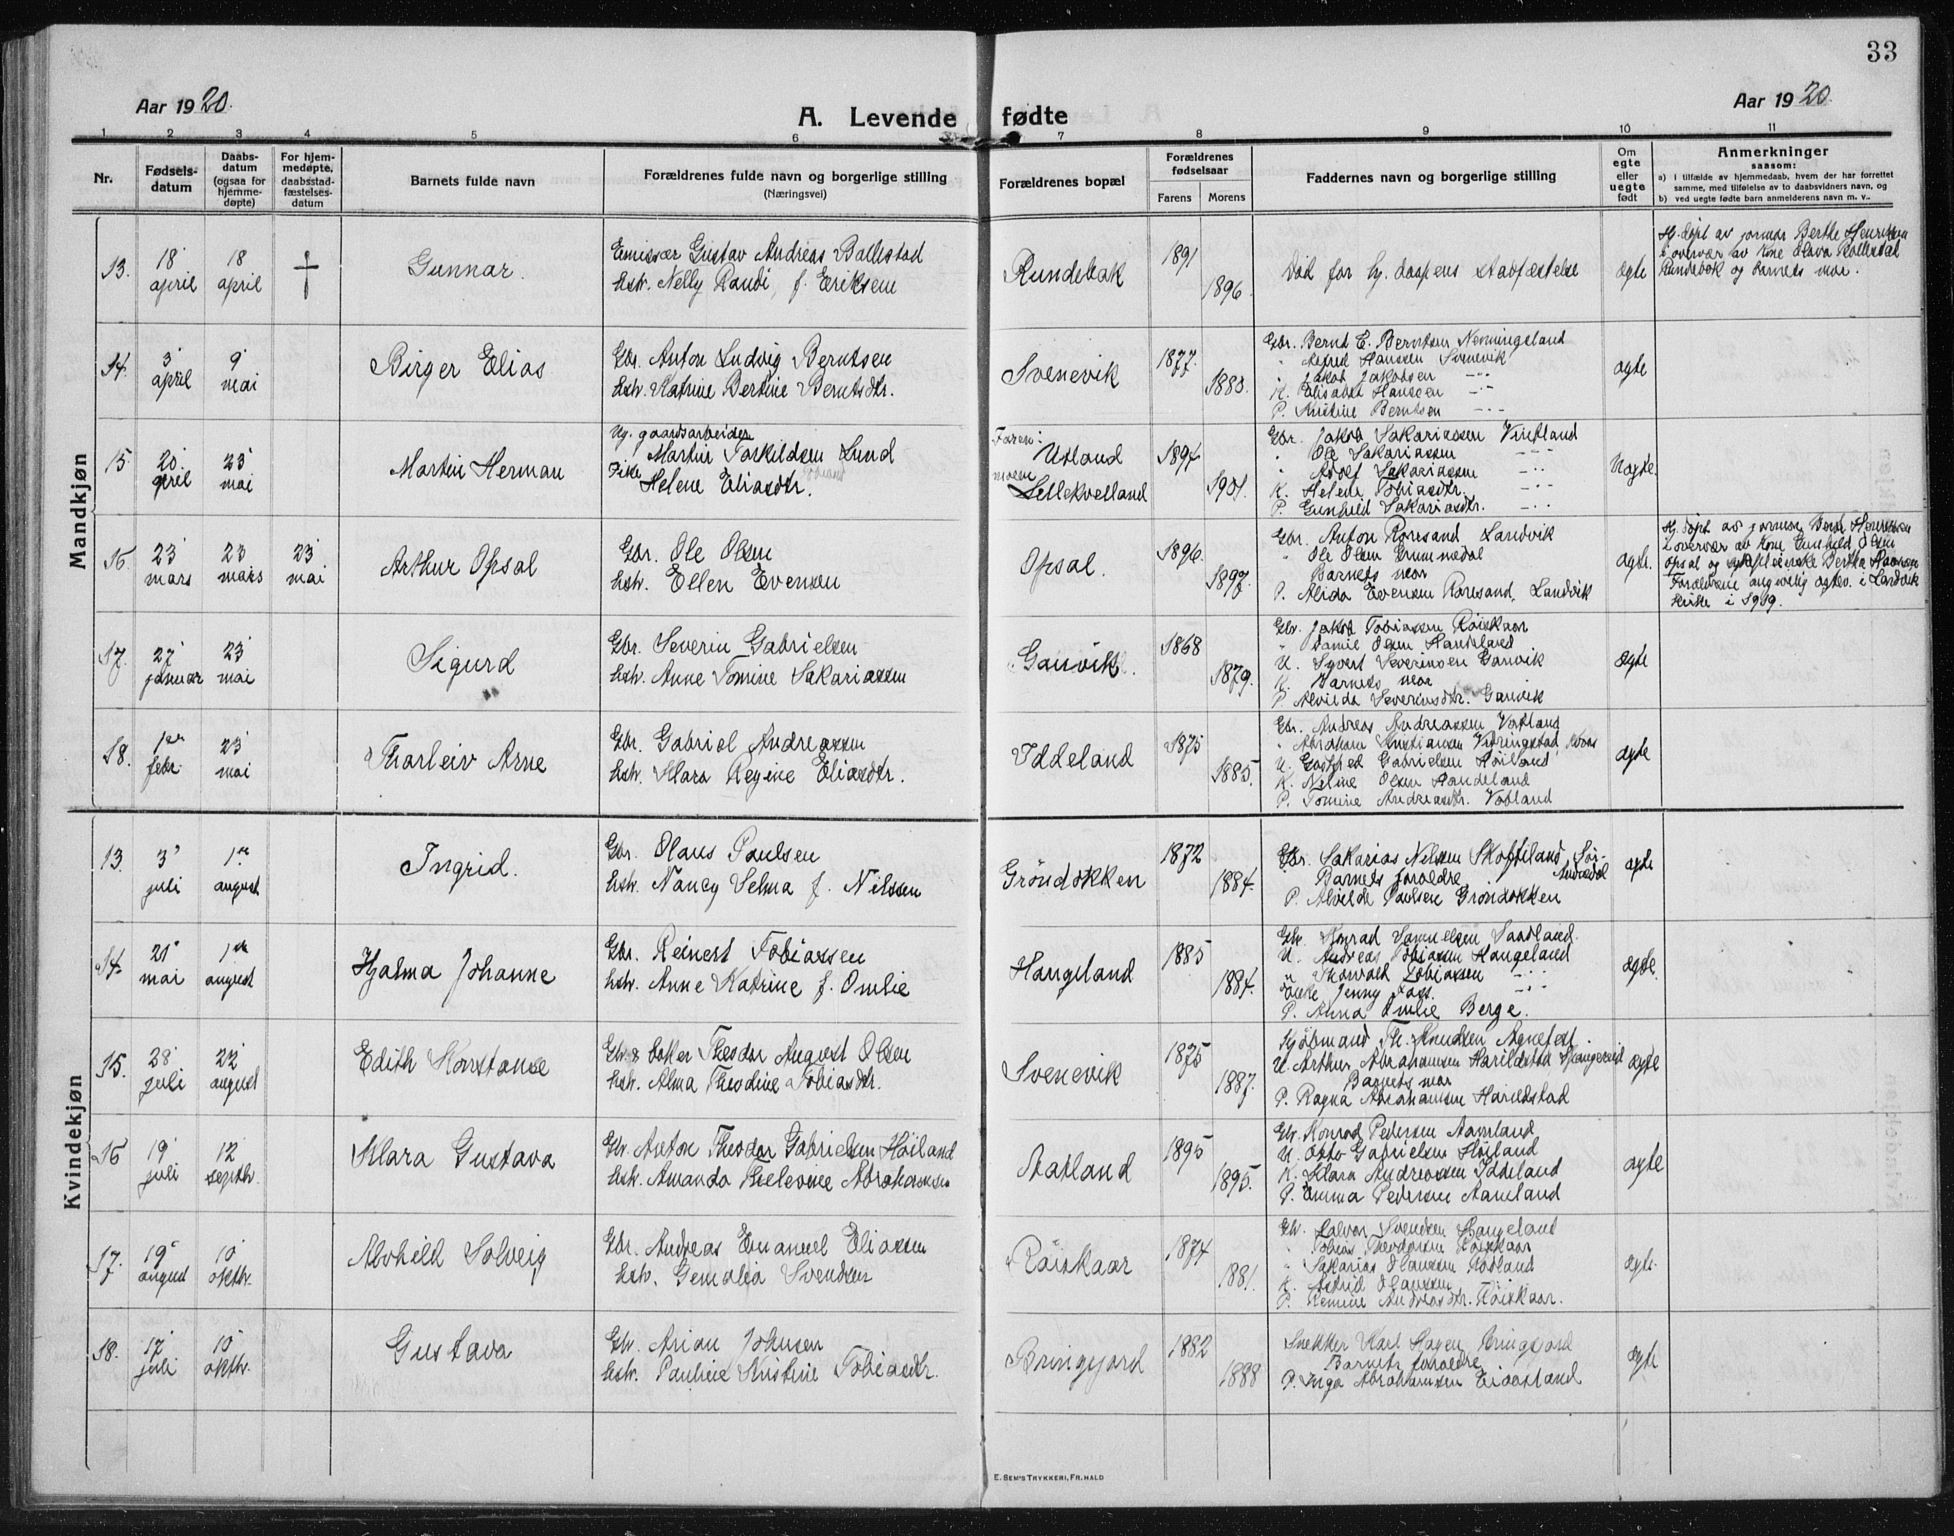 33
Aar 1920.
A. Levende fødte
Aar 1920.
1 2 3 4 5 6 7 8 9 10 11
Nr.
Fødsels-
datum
Daabs-
datum
(ogsaa for
hjemme-
døpte)
For hjem-
medøpte,
daabsstad-
fæstelses-
datum
Barnets fulde navn
Forældrenes fulde navn og borgerlige stilling
(Næringsvei)
Forældrenes bopæl
Forældrenes
fødselsaar
Farens
Morens
Faddernes navn og borgerlige stilling
Om
egte
eller
uegte
født
Anmerkninger
saasom:
a) i tilfælde av hjemmedaab, hvem der har forrettet
samme, med tilføielse av to daabsvidners navn, og
b) ved uegte fødte barn anmelderens navn m. v.
Mandkjøn
13. 18 april 18 april † Gunnar.
Emissær Gustav Andreas Ballestad
Hstr. Nelly Randi, f. Eriksen
Rundebak 1891 1896.
Död for hj. daapens stadfæstelse
ægte
Hj. döpt av jormor Berthe Henriksen
i overvær av Kone Olava
og barnets mor.
14. 3 april 9 mai Birger Elias
Gbr. Anton Ludvig Berntsen
Hstr. Katrine Bertine Berntsdtr.
Svenevik 1877. 1883.
Gbr. Bernt E. Berntsen
" Alfred Hansen Svenevik
" Jakob Jakobsen -"-
K. Elisabet Hansen -"-
P. Kristine Berntsen -"-
ægte
15 20 april 23 mai Martin Herman
Ug. gaardsarbeider
Martin Torkildsen Lund
Pike Helene Eliasdtr.
Faren: Utland
moren Lillekvelland
1897 1901.
Gbr. Jakob Sakariassen
" Ole Sakariassen -"-
" Adolf Sakariassen -"-
K. Helene Tobiasdtr. -"-
P. Gunhild Sakariasdtr. -"-
Uægte.
16. 23 mars 23 mars 23 mai Arthur Opsal
Gbr. Ole Olsen
Hstr. Ellen Evensen
Opsal. 1896. 1897.
Gbr. Anton Roresand Landvik
" Ole Olsen
Barnets mor
P. Alida Evensen Roresand, Landvik
ægte.
Hj. döpt av jormor Berthe Henriksen
i overvær av Kone Gunhild Olsen
Opsal og
Forældrene angivelig ægtev. i Landvik
Kirke i 1919.
17. 27 januar 23 mai Sigurd
Gbr. Severin Gabrielsen
Hstr. Anne Tomine Sakariassen
Ganvik. 1868 1879.
Gbr. Jakob Tobiassen Röiskaar
" Olsen Handeland
U. Syvert Severinsen Ganvik
K. Barnets mor
P. Alvilda Severinsdtr. Ganvik
ægte
18. 1ste febr. 23 mai Tharleiv Arne
Gbr. Gabriel Andreassen
Hstr. Klara Regine Eliasdtr.
Iddeland 1875 1885.
Gbr. Andreas Andreassen Vatland
" Abraham Kristiansen
U. Gotfred Gabrielsen Höiland
K. Neline Olsen Handeland
P. Tomine Andreasdtr. Vatland
ægte
Kvindekjøn
13. 3 juli 1ste august Ingrid.
Gbr. Olaus Paulsen
Hstr. Nancy Selma f. Nilssen
Gröndokken 1872 1884.
Gbr. Sakarias Nilssen Skofteland, Sör-
Barnets forældre Andedal
P. Alvilde Paulsen Gröndokken
ægte
14. 21 mai 1ste august Hjalma Johanne
Gbr. Reinert Tobiassen
Hstr. Anne Katrine f. Omlie
Hangeland 1885 1884.
Gbr. Konrad Samuelsen
U. Andreas Tobiassen Hangeland
" Thorvald Tobiassen -"-
Pike Jenny -"-
P. Anna Omlie Berge.
ægte.
15. 28 juli 22 august Edith Konstanse
Theodor August Olsen
Hstr. Alma Theodine Tobiasdtr.
Svenevik 1875 1887.
Kjöbmand Th. Knudsen
U. Arthur Abrahamsen
Barnets mor
P. Ragna Abrahamsen Harildstad
ægte
16 19 juli 12 septbr. Klara Gustava
Gbr. Anton Theodor Gabrielsen Höiland
Hstr. Amanda Abrahamsen
Aatland 1895 1895.
Gbr. Konrad Pedersen Aamland
U. Otto Gabrielsen Höiland
K. Klara Andreassen Iddeland
P. Emma Pedersen Aamland
ægte
17. 19 august 10 oktbr. Alvhild Solveig
Gbr. Andreas Emanuel Eliassen
Hstr. Gemalia Svendsen
Röiskaar 1874 1881.
Gbr. Halvor Svendsen Hangeland
" Tobias Teodorsen Röiskaar
" Sakarias Olaussen
K. Astrid Olaussen
P. Andreasdtr. Röiskaar.
ægte.
18. 17 juli 10 oktbr. Gustava
Gbr. Arian Johnsen
Hstr. Pauline Kristine Tobiasdtr.
Bringsjord 1882 1888
Snekker Karl Hagen Bringsjord
Barnets forældre
P. Inga Abrahamsen
ægte
E. SEM'S TRYKKERI, FR.HALD